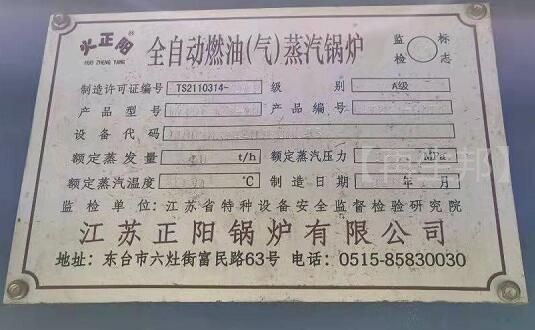 火正阳®
HUO ZHENG YANG
全自动燃油(气)蒸汽锅炉
监检 标志
制造许可证编号 TS2110314- 级别 A级
产品型号 产品编号
设备代码
额定蒸发量 t/h 额定蒸汽压力 MPa
额定蒸汽温度 ℃ 制造日期 年 月
监检单位:江苏省特种设备安全监督检验研究院
江苏正阳锅炉有限公司
地址:东台市六灶街富民路63号 电话:0515-85830030